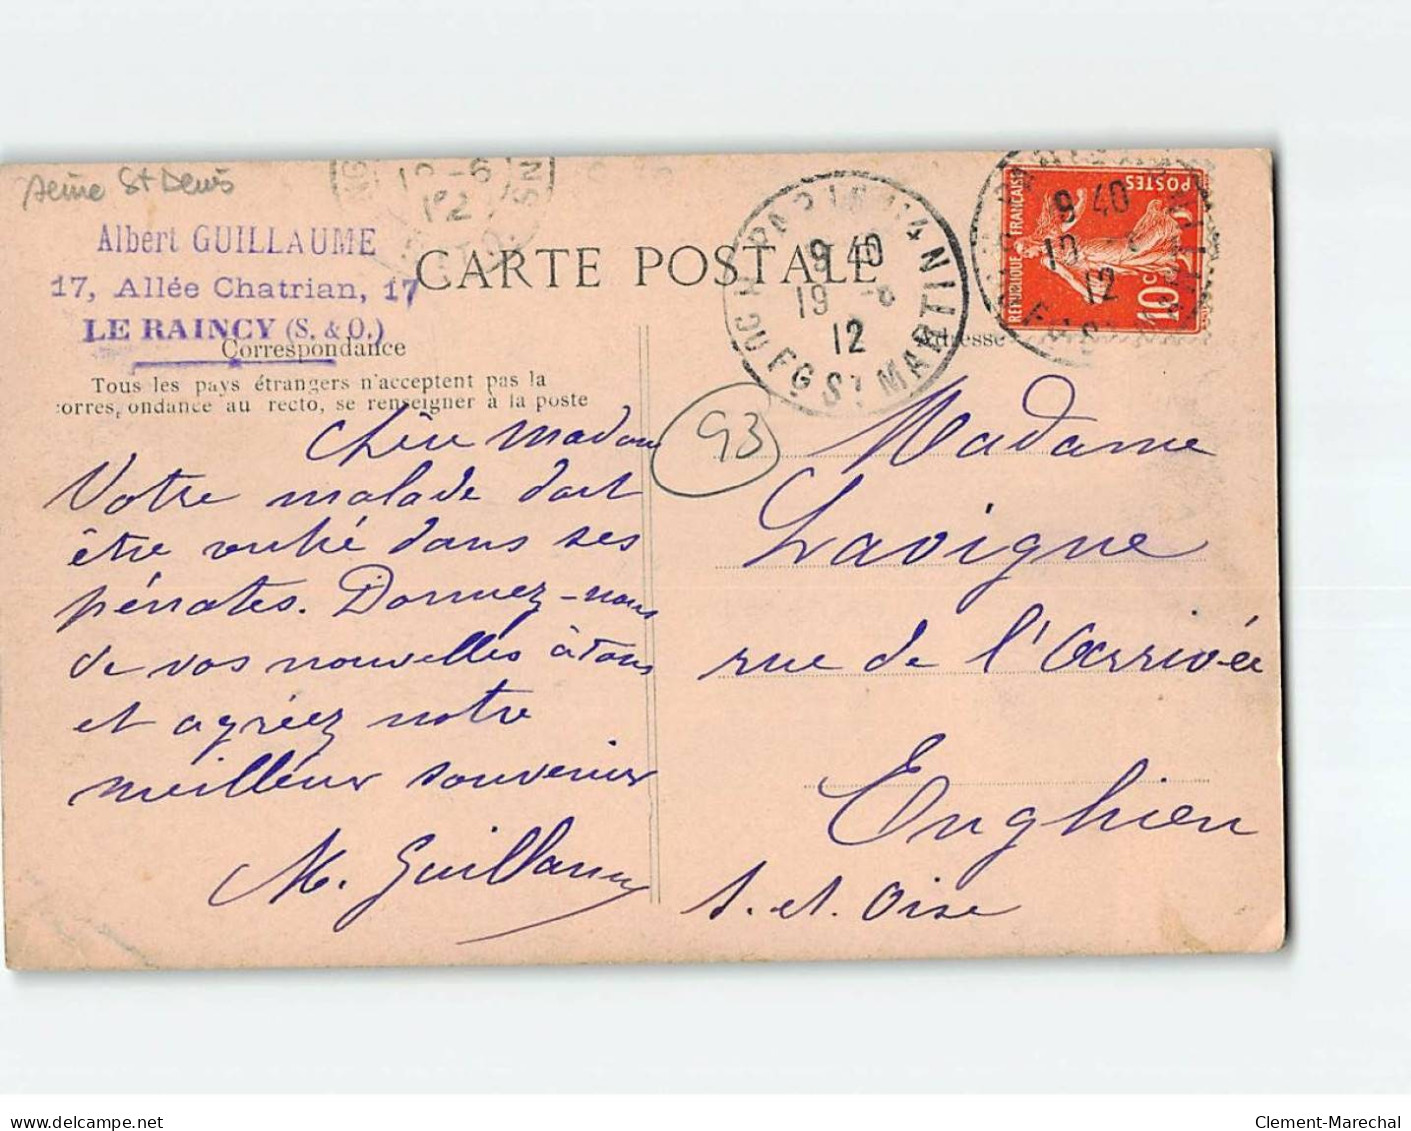 Seine St Denis
Albert GUILLAUME
17, Allée Chatrian, 17
LE RAINCY (S. & O.)
CARTE POSTALE
Correspondance
Tous les pays étrangers n'acceptent pas la
correspondance au recto, se renseigner à la poste
Adresse
PARIS
9 40
19 -6
12
R. DU FG ST MARTIN
9 40
12
RÉPUBLIQUE FRANÇAISE
POSTES
10c
93
Chère Madame
Votre malade doit
être rentré dans ses
pénates. Donnez-nous
de vos nouvelles à tous
et agréez notre
meilleur souvenir
M. Guillaume
Madame
Lavigne
rue de l'Arrivée
Enghien
S. et. Oise
www.delcampe.net
Clement-Marechal